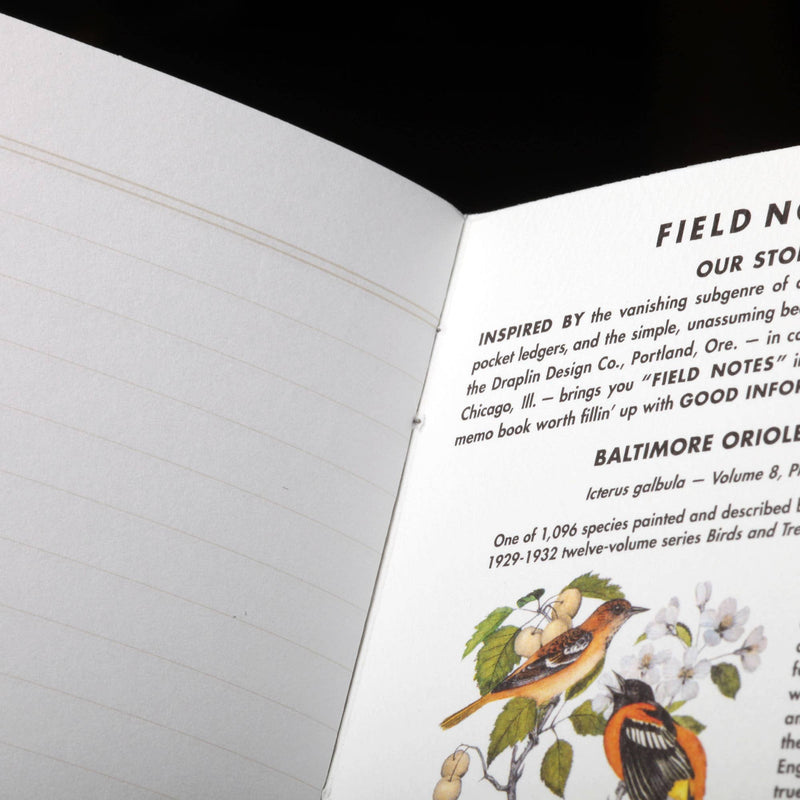 FIELD NO
OUR STO
INSPIRED BY the vanishing subgenre of
pocket ledgers, and the simple, unassuming be
the Draplin Design Co., Portland, Ore. — in co
Chicago, Ill. — brings you “FIELD NOTES” in
memo book worth fillin’ up with GOOD INFOR
BALTIMORE ORIOLE
Icterus galbula — Volume 8, Pl
One of 1,096 species painted and described b
1929-1932 twelve-volume series Birds and Tre
w
an
the
Eng
true